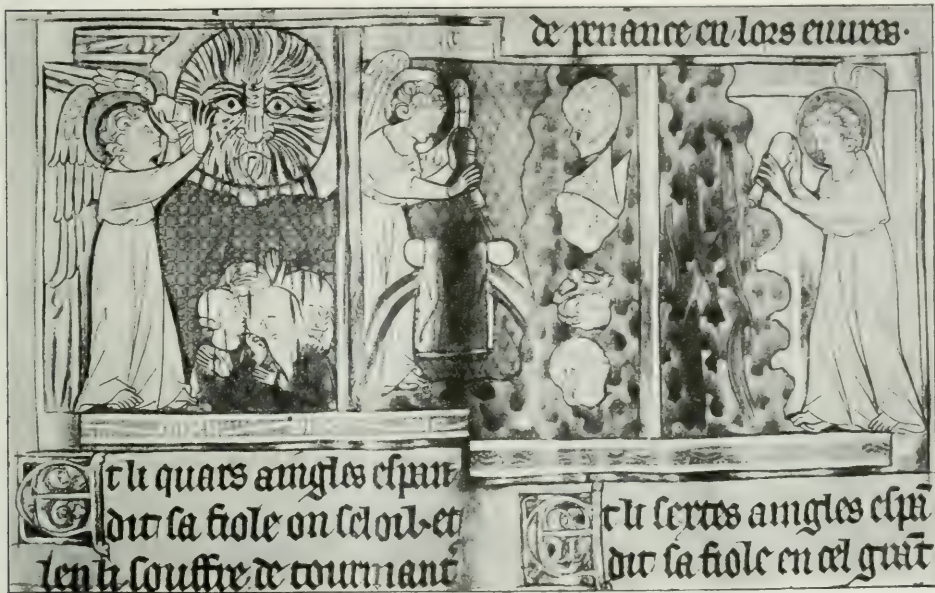 de penance en lors euures·
Et li quars aingles espan-
dit sa fiole ou soloil· et
len li souffre de tourmant
Et li sextes aingles espā
dit sa fiole en cel grāt